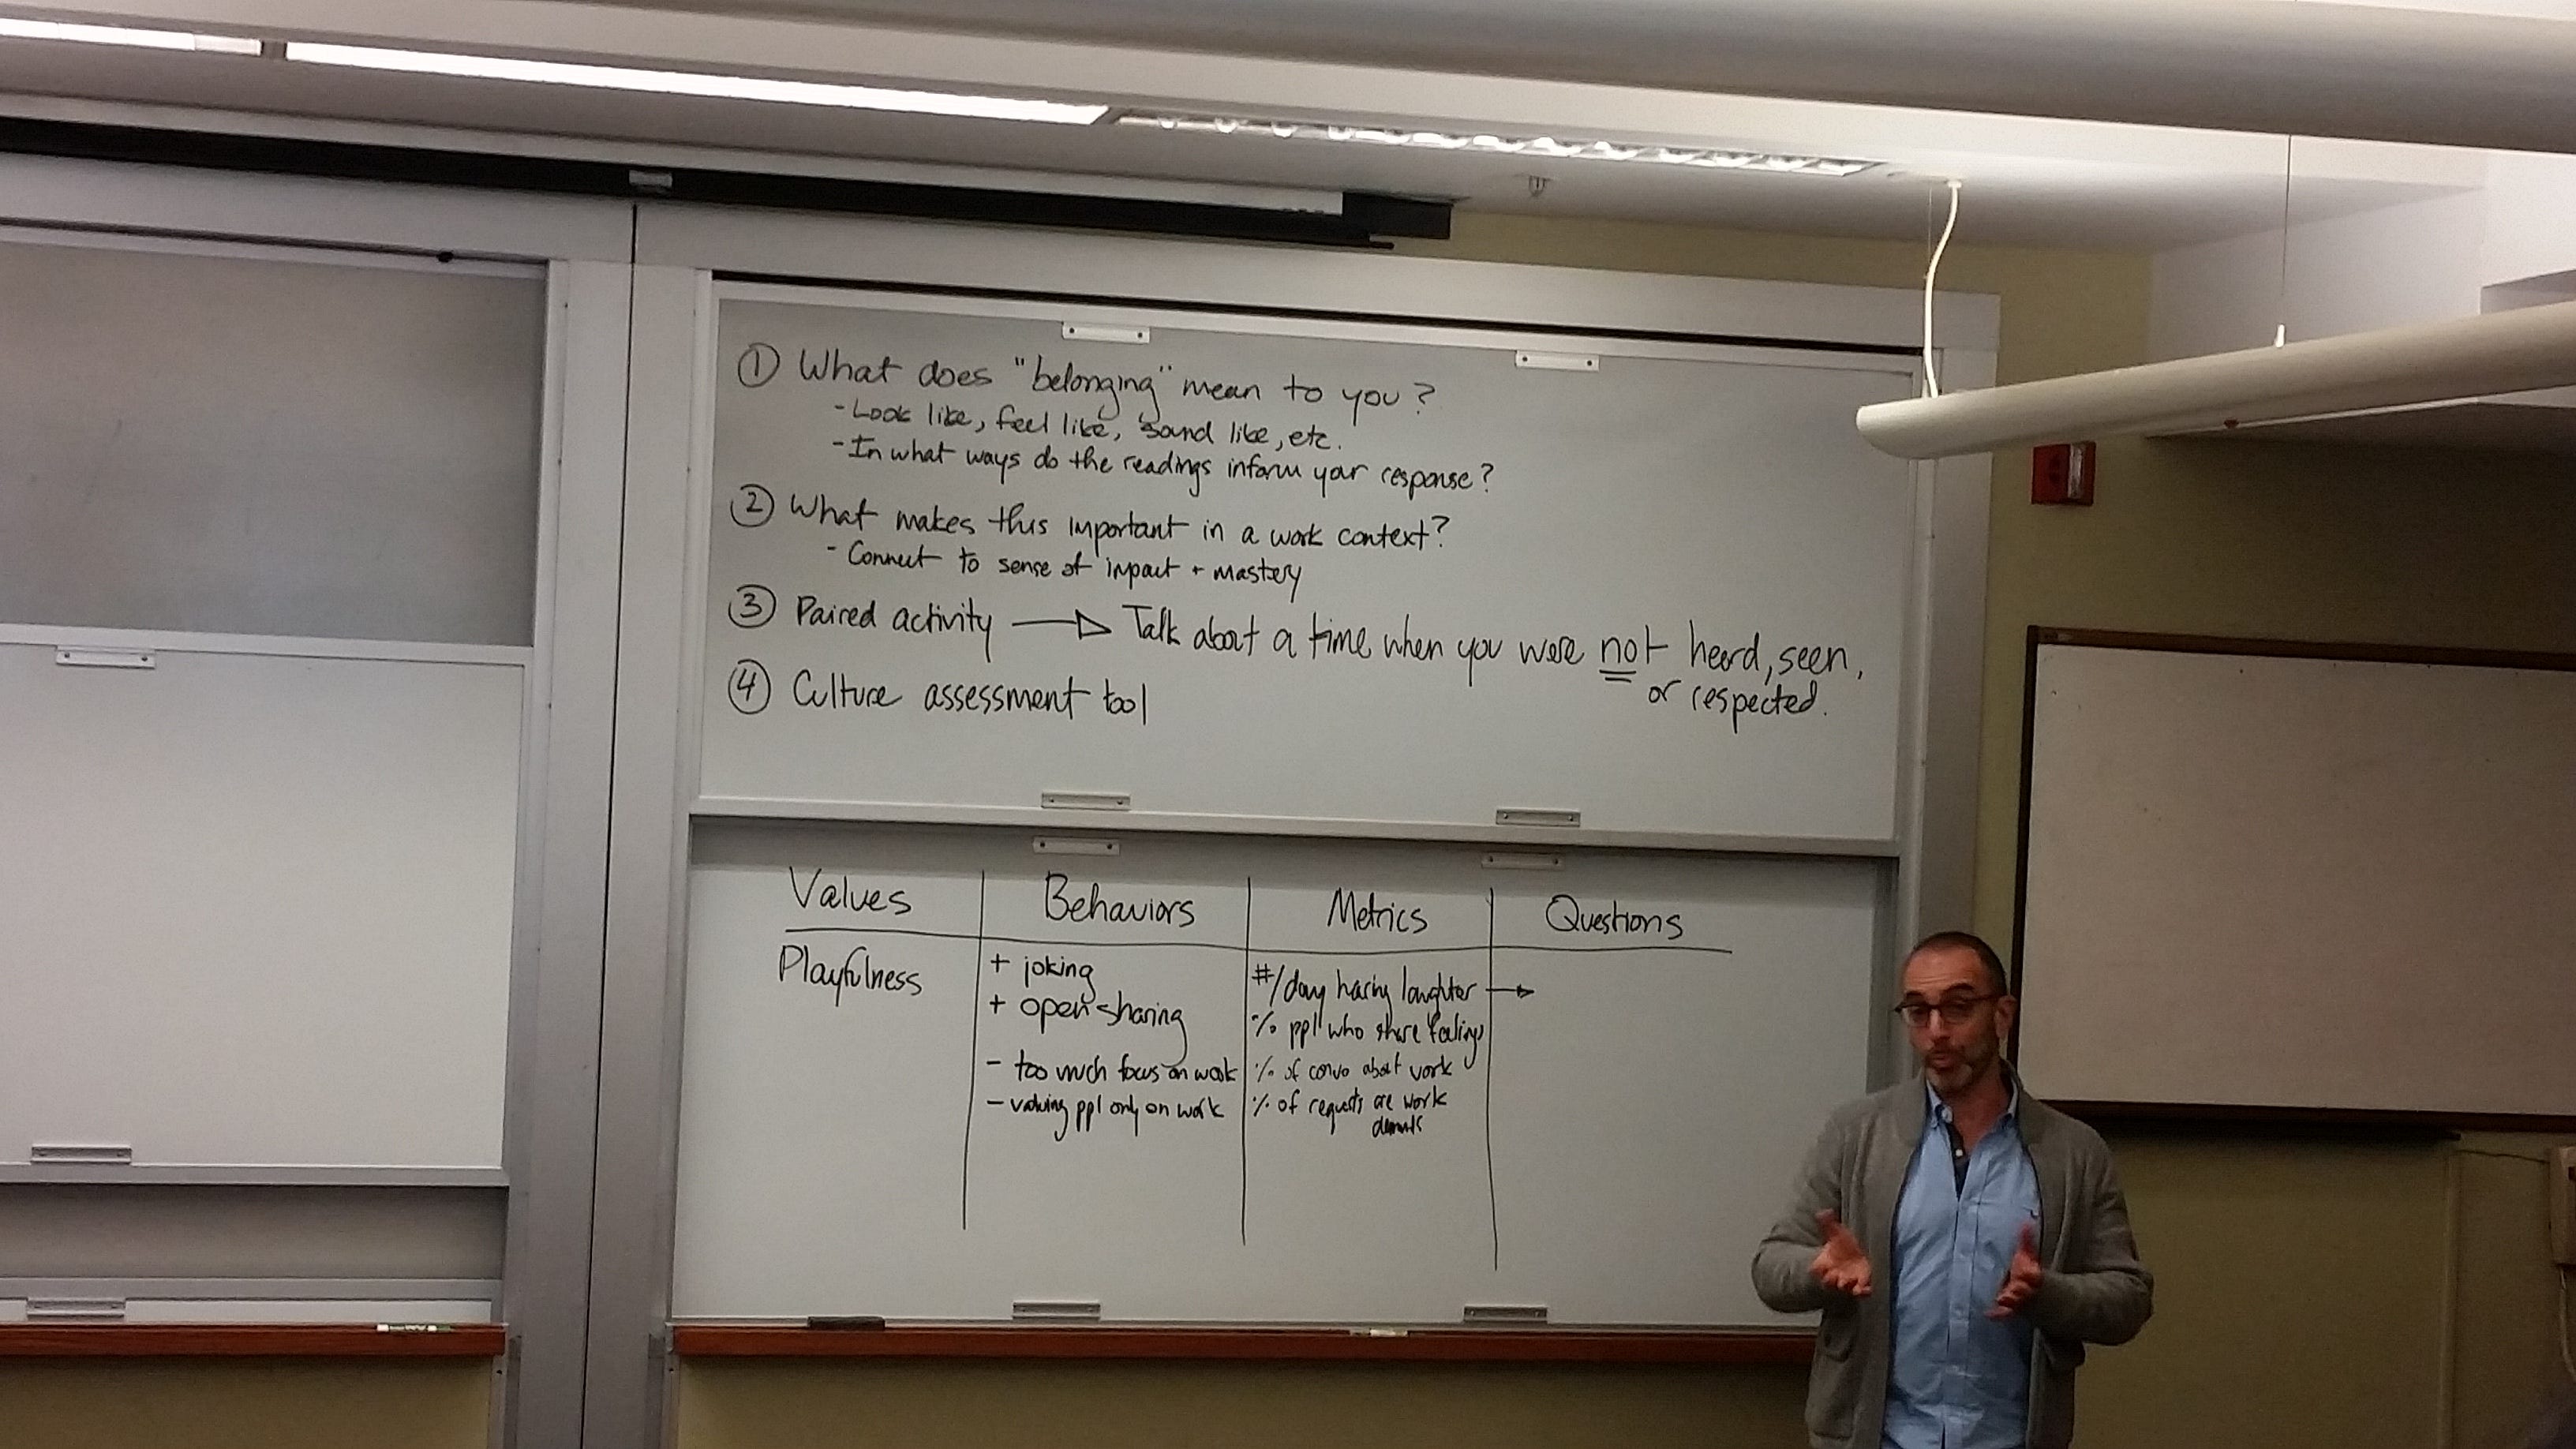 ① What does "belonging" mean to you?
- Look like, feel like, sound like, etc.
- In what ways do the readings inform your response?
② What makes this important in a work context?
- Connect to sense of impact + mastery
③ Paired activity → Talk about a time when you were not heard, seen,
or respected.
④ Culture assessment tool
Values Behaviors Metrics Questions
Playfulness + joking #/day hearing laughter →
+ open sharing % ppl who share feelings
- too much focus on work % of convo about work
- valuing ppl only on work % of requests are work